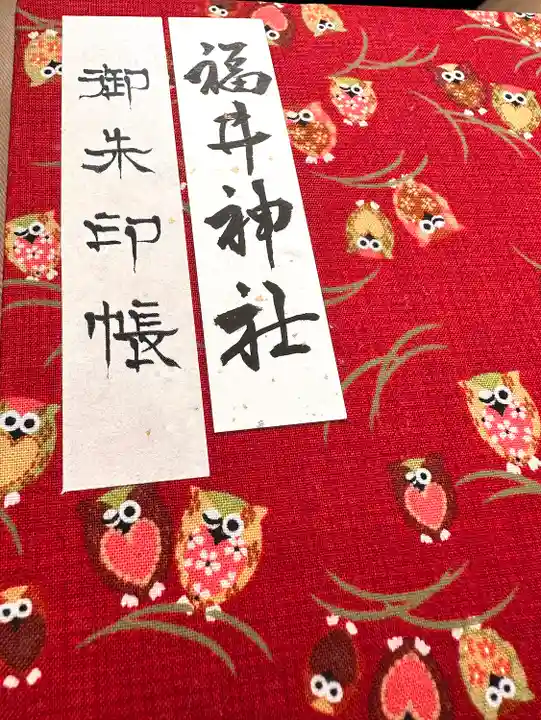 福井神社
御朱印帳